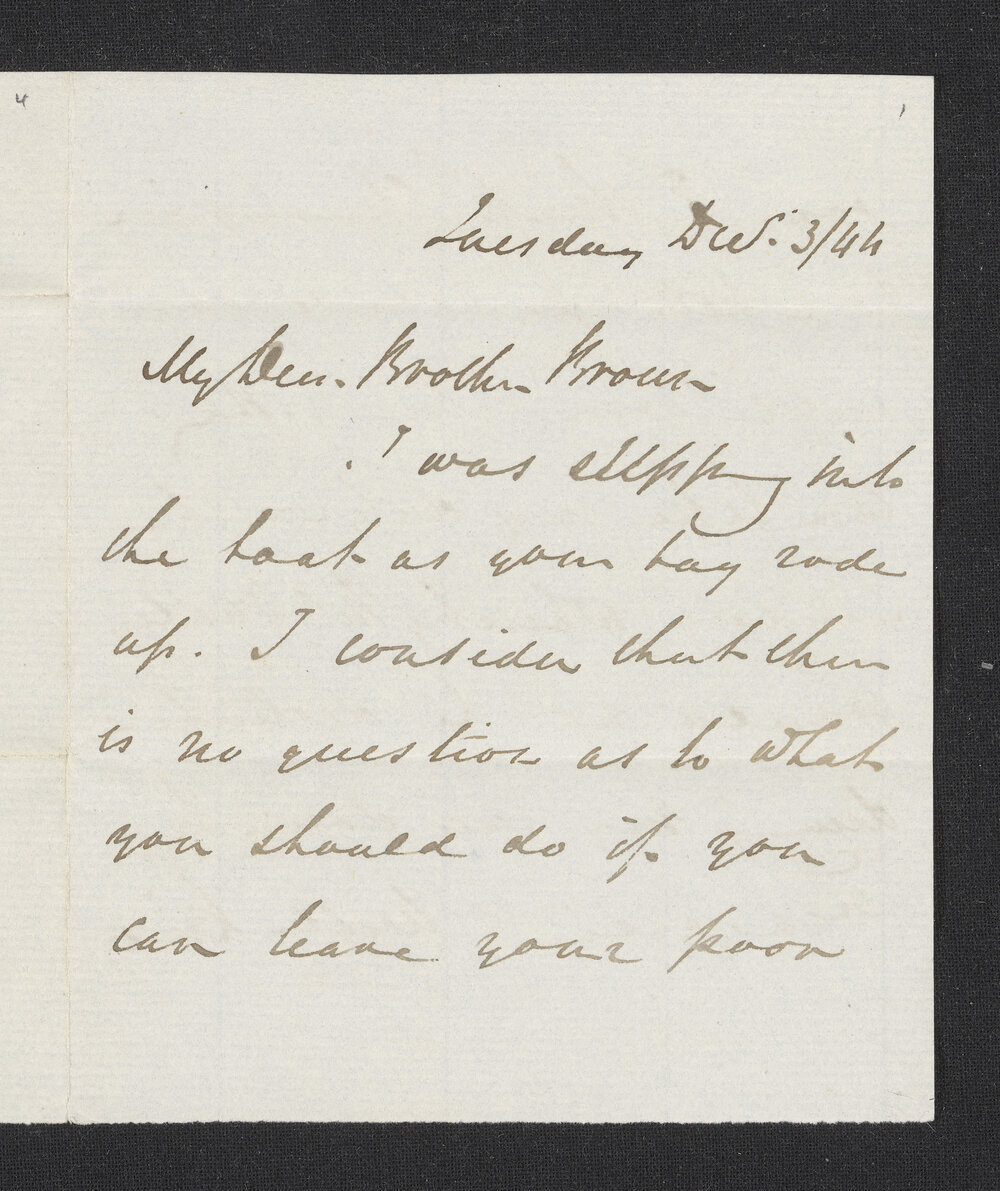 4
1
Tuesday Dec. 3/44
My Dear Brother Brown
I was stepping into
the boat as your boy rode
up. I consider that there
is no question as to what
you should do if you
can leave your poor